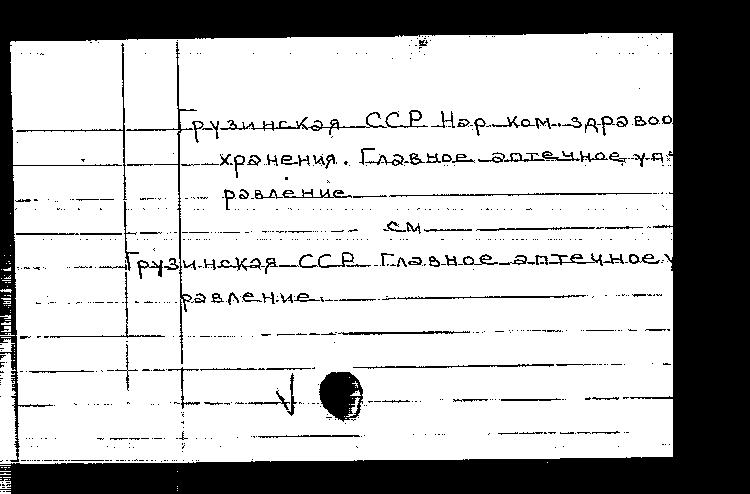 Грузинская ССР Нар. ком. здравоо
хранения. Главное аптечное уп
равление
см
Грузинская ССР Главное аптечное у
равление.